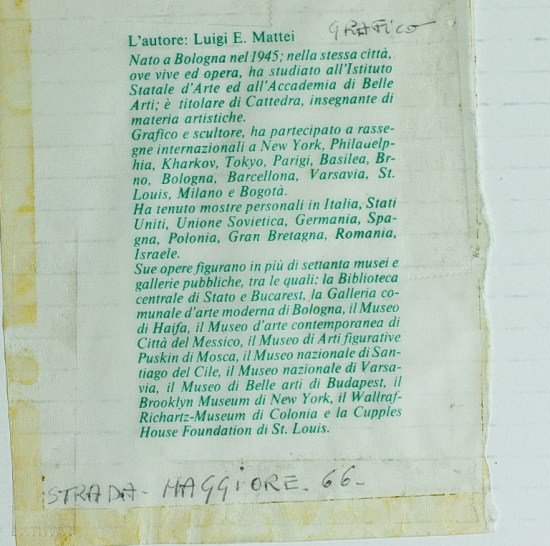 GRAFICO
L'autore: Luigi E. Mattei
Nato a Bologna nel 1945; nella stessa città,
ove vive ed opera, ha studiato all'Istituto
Statale d'Arte ed all'Accademia di Belle
Arti; è titolare di Cattedra, insegnante di
materia artistiche.
Grafico e scultore, ha partecipato a rasse-
gne internazionali a New York, Philadelp-
hia, Kharkov, Tokyo, Parigi, Basilea, Br-
no, Bologna, Barcellona, Varsavia, St.
Louis, Milano e Bogotà.
Ha tenuto mostre personali in Italia, Stati
Uniti, Unione Sovietica, Germania, Spa-
gna, Polonia, Gran Bretagna, Romania,
Israele.
Sue opere figurano in più di settanta musei e
gallerie pubbliche, tra le quali: la Biblioteca
centrale di Stato e Bucarest, la Galleria co-
munale d'arte moderna di Bologna, il Museo
di Haifa, il Museo d'arte contemporanea di
Città del Messico, il Museo di Arti figurative
Puskin di Mosca, il Museo nazionale di San-
tiago del Cile, il Museo nazionale di Varsa-
via, il Museo di Belle arti di Budapest, il
Brooklyn Museum di New York, il Wallraf-
Richartz-Museum di Colonia e la Cupples
House Foundation di St. Louis.
STRADA - MAGGIORE - 66 -